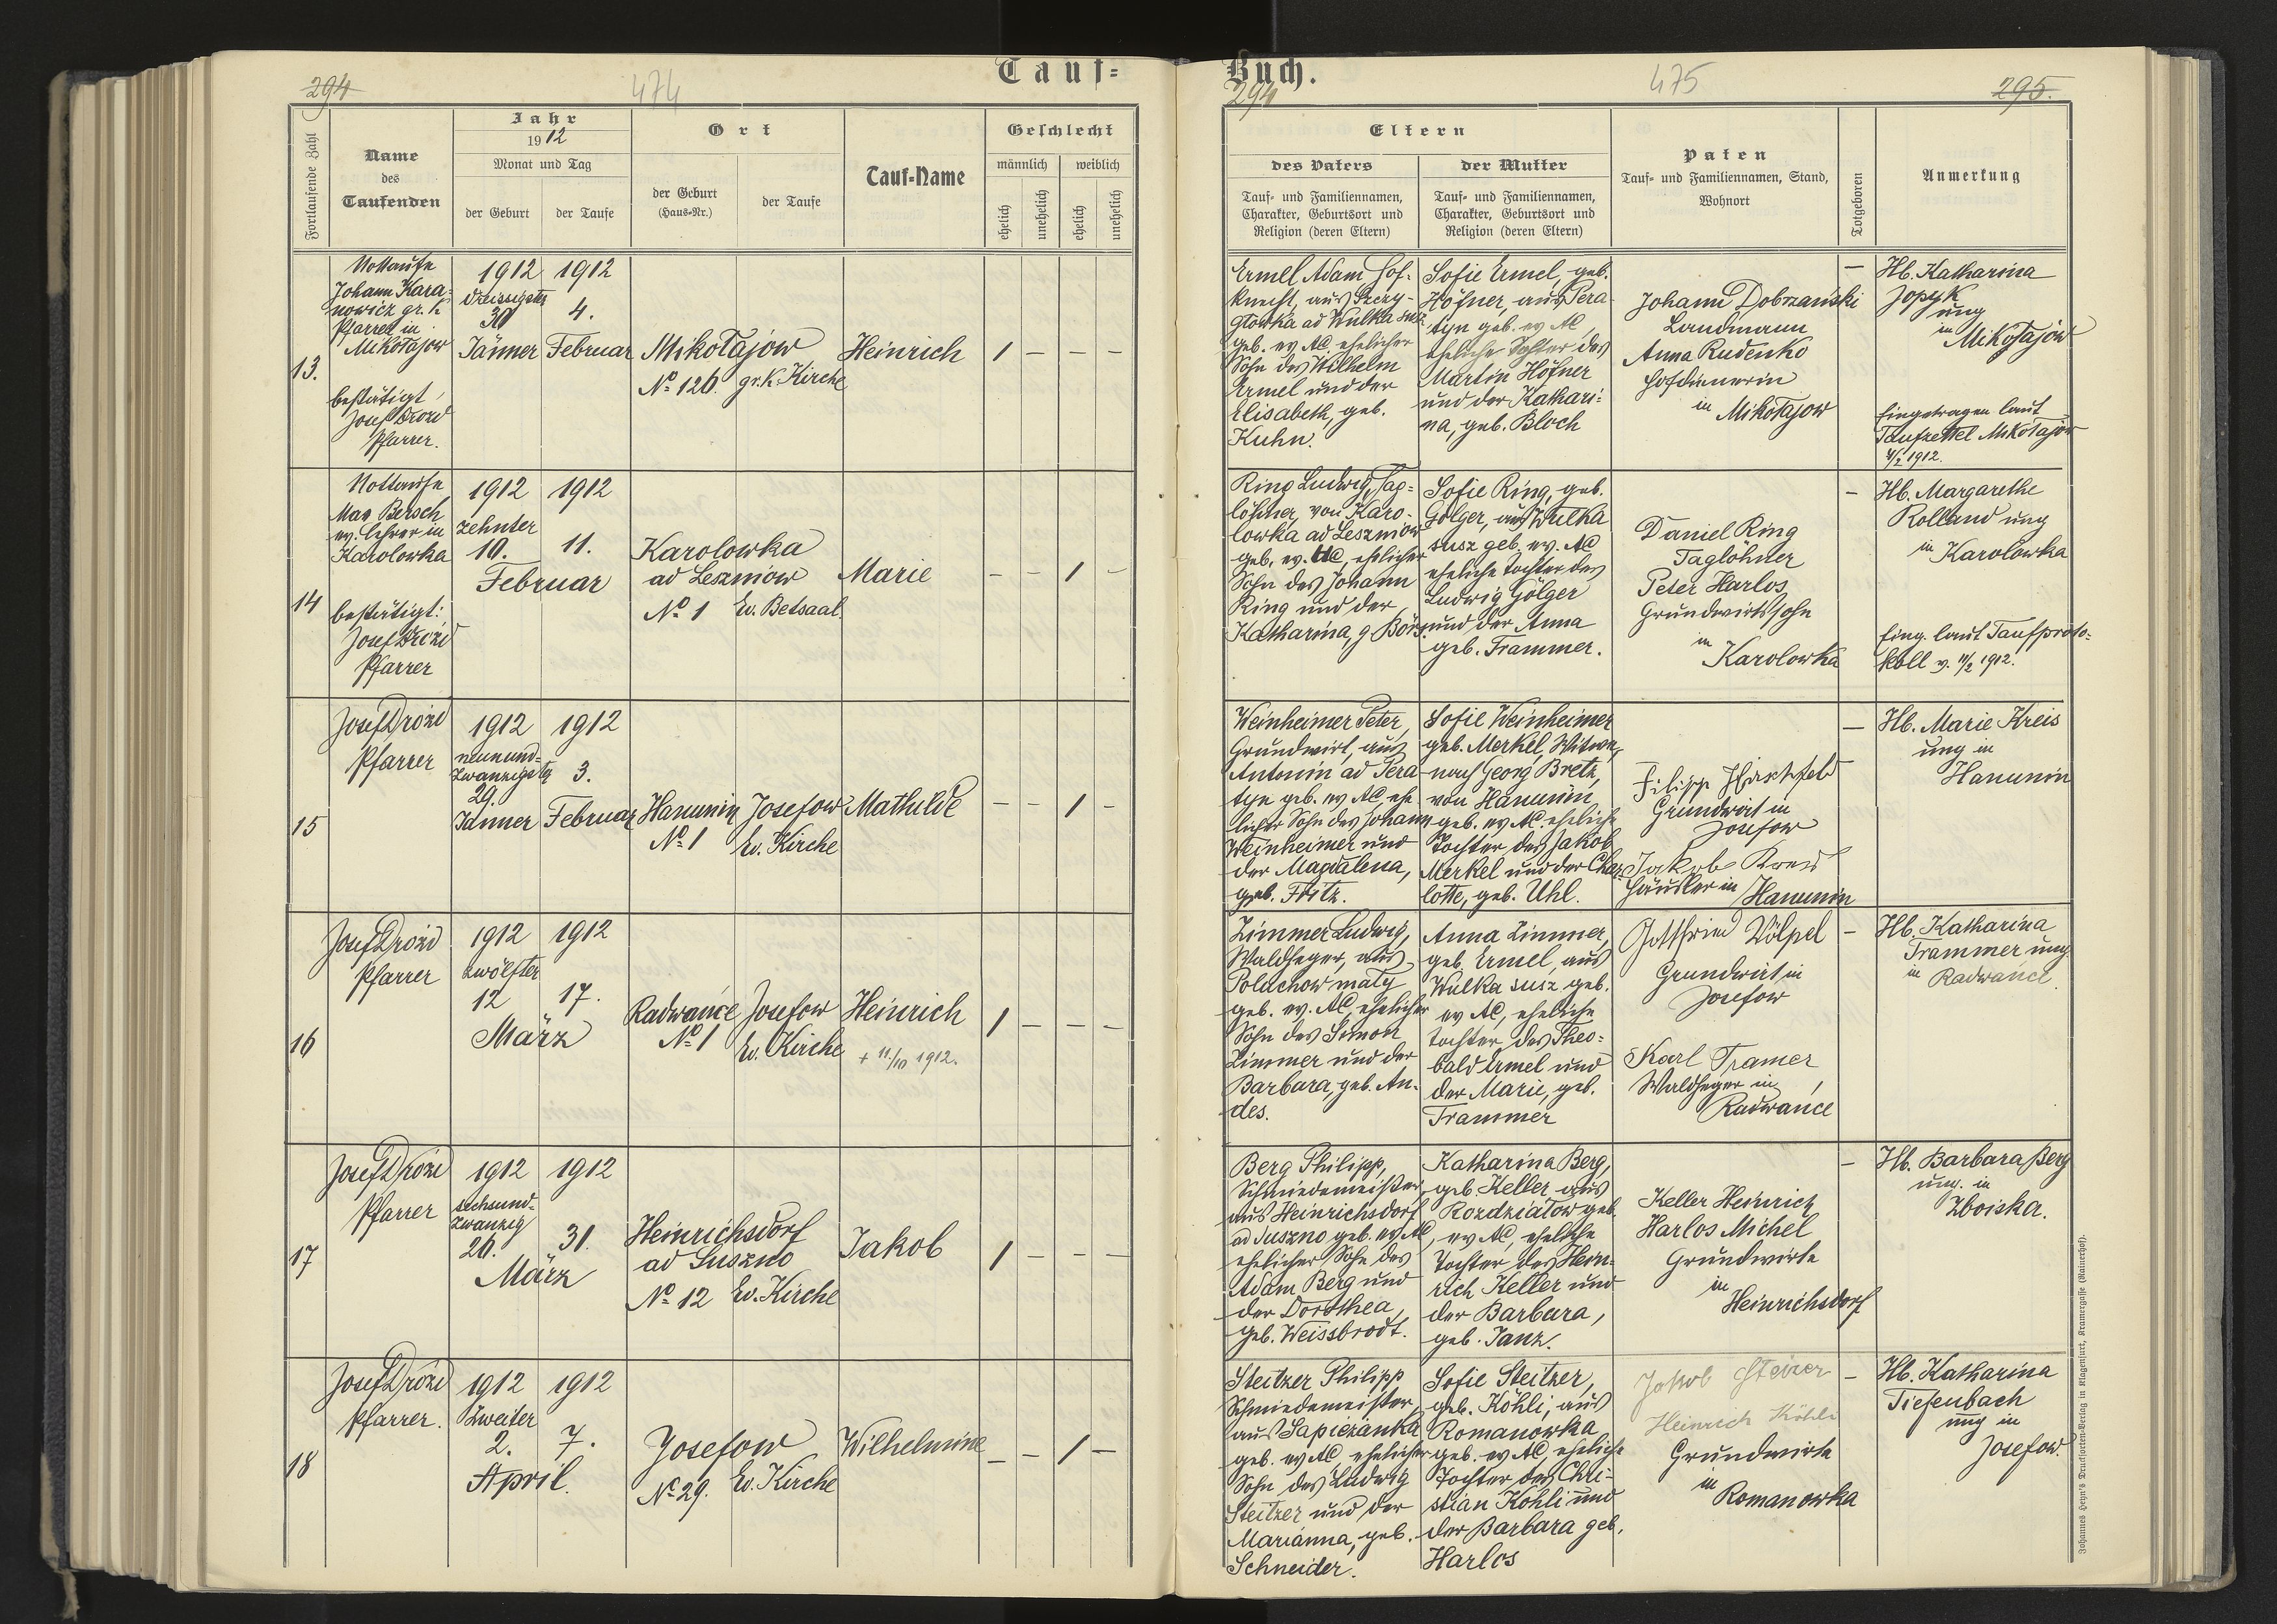 Tauf=
Buch.
294
474
294
475
295.
Fortlaufende Zahl
Name
des
Taufenden
Jahr
1912
Monat und Tag
der Geburt
der Taufe
Ort
der Geburt
(Haus=Nr.)
der Taufe
Tauf=Name
Geschlecht
männlich
weiblich
ehelich
unehelich
ehelich
unehelich
Eltern
des Vaters
Tauf= und Familiennamen,
Charakter, Geburtsort und
Religion (deren Eltern)
der Mutter
Tauf= und Familiennamen,
Charakter, Geburtsort und
Religion (deren Eltern)
Paten
Tauf= und Familiennamen, Stand,
Wohnort
Totgeboren
Anmerkung
13.
Nottaufe
Johann Kara=
nowicz gr. K
Pfarrer in
Mikołajow
bestätigt
Josef Drozd
Pfarrer.
1912
dreissigster
30
Jänner
1912
4.
Februar
Mikołajow
No 126.
gr. K. Kirche
Heinrich
1 – – –
Ermel Adam Hof=
knecht, aus Szczy-
główka ad Wulka susz
geb. ev AC ehelicher
Sohn des Wilhelm
Ermel und der
Elisabeth, geb.
Kuhn.
Sofie Ermel, geb.
Höfner, aus Pera
tyn geb. ev AC,
eheliche Tochter des
Martin Höfner
und der Kathari=
na, geb. Bloch
Johann Dobrzański
Landmann
Anna Rudenko
Hofdienerin
in Mikołajow
–
Hb. Katharina
Jopyk
ung
in
Mikołajow
Eingetragen laut
Taufzettel Mikołajow
4/2 1912.
14
Nottaufe
Max Bersch
ev. Lehrer in
Karolowka
bestätigt:
Josef Drozd
Pfarrer
1912
zehnter
10.
1912
11.
Februar
Karolowka
ad Leszniow
No 1
Ev. Betsaal.
Marie
– – 1 –
Ring Ludwig, Tag=
löhner, von Karo-
lowka ad Leszniow
geb. ev. AC, ehelicher
Sohn des Johann
Ring und der
Katharina, g. Börs.
Sofie Ring, geb.
Golger, aus Wulka
susz geb. ev. AC
eheliche Tochter des
Ludwig Gölger
und der Anna
geb. Trammer.
Daniel Ring
Taglöhner
Peter Harlos
Grundwirtssohn
in
Karolowka
–
Hb. Margarethe
Rolland ung
in Karolowka
Eing. laut Taufproto=
koll v. 11/2 1912.
15
Josef Drozd
Pfarrer
1912
neunund=
zwanzigster
29.
Jänner
1912
3.
Februar
Hanunin
No 1
Josefow
Ev. Kirche
Mathilde
– – 1 –
Weinheimer Peter,
Grundwirt, aus
Antonin ad Pera
tyn geb. ev AC, ehe
licher Sohn des Johann
Weinheimer und
der Magdalena,
geb. Fritz.
Sofie Weinheimer
geb. Merkel, Witwe,
nach Georg Bretz,
von Hanunin,
geb. ev. AC. eheliche
Tochter des Jakob
Merkel und der Char
lotte, geb. Uhl.
Filipp Hirschfeld
Grundwirt in
Josefow
Jakob Kreis
Häusler in Hanunin
–
Hb. Marie Kreis
ung in
Hanunin
16
Josef Drozd
Pfarrer
1912
zwölfter
12
1912
17.
März
Radwańce
No 1
Josefow
Ev. Kirche
Heinrich
+ 11./10 1912.
1 – – –
Zimmer Ludwig,
Waldheger, aus
Poluchow mały
geb. ev. AC, ehelicher
Sohn des Simon
Zimmer und der
Barbara, geb. An-
des.
Anna Zimmer,
geb. Ermel, aus
Wulka susz geb.
ev AC, eheliche
Tochter des Theo=
bald Ermel und
der Marie, geb.
Trammer
Gottfried Völpel
Grundwirt in
Josefow
Karl Tramer
Waldheger in
Radwańce
–
Hb. Katharina
Trammer ung.
in Radwańce.
17
Josef Drozd
Pfarrer
1912
sechsund=
zwanzig
26.
1912
31.
März
Heinrichsdorf
ad Suszno
No 12
Ev. Kirche
Jakob
1 – – –
Berg Philipp,
Schmiedemeister
aus Heinrichsdorf
ad Suszno geb. ev AC,
ehelicher Sohn des
Adam Berg und
der Dorothea,
geb. Weissbrodt.
Katharina Berg,
geb. Keller aus
Rozdziałow geb.
ev AC, eheliche
Tochter des Hein-
rich Keller und
der Barbara,
geb. Janz.
Keller Heinrich
Harlos Michel
Grundwirte
in
Heinrichsdorf
–
Hb. Barbara Berg
ung. in
Zboiska.
18
Josef Drozd
Pfarrer.
1912
Zweiter
2.
1912
7.
April.
Josefow
No 29.
Ev. Kirche
Wilhelmine
– – 1 –
Steitzer Philipp
Schmiedemeister,
aus Sapieżanka
geb. ev AC, ehelicher
Sohn des Ludwig
Steitzer und der
Marianna, geb.
Schneider.
Sofie Steitzer,
geb. Köhli, aus
Romanowka
geb. ev. AC, eheliche
Tochter des Chri-
stian Köhli und
der Barbara geb.
Harlos
Jakob
Heinrich Köhli
Grundwirte
in
Romanowka
–
Hb. Katharina
Tiefenbach
ung in
Josefow.
Johannes Heyn's Drucksorten=Verlag in Klagenfurt, Kramergasse (Rainerhof).